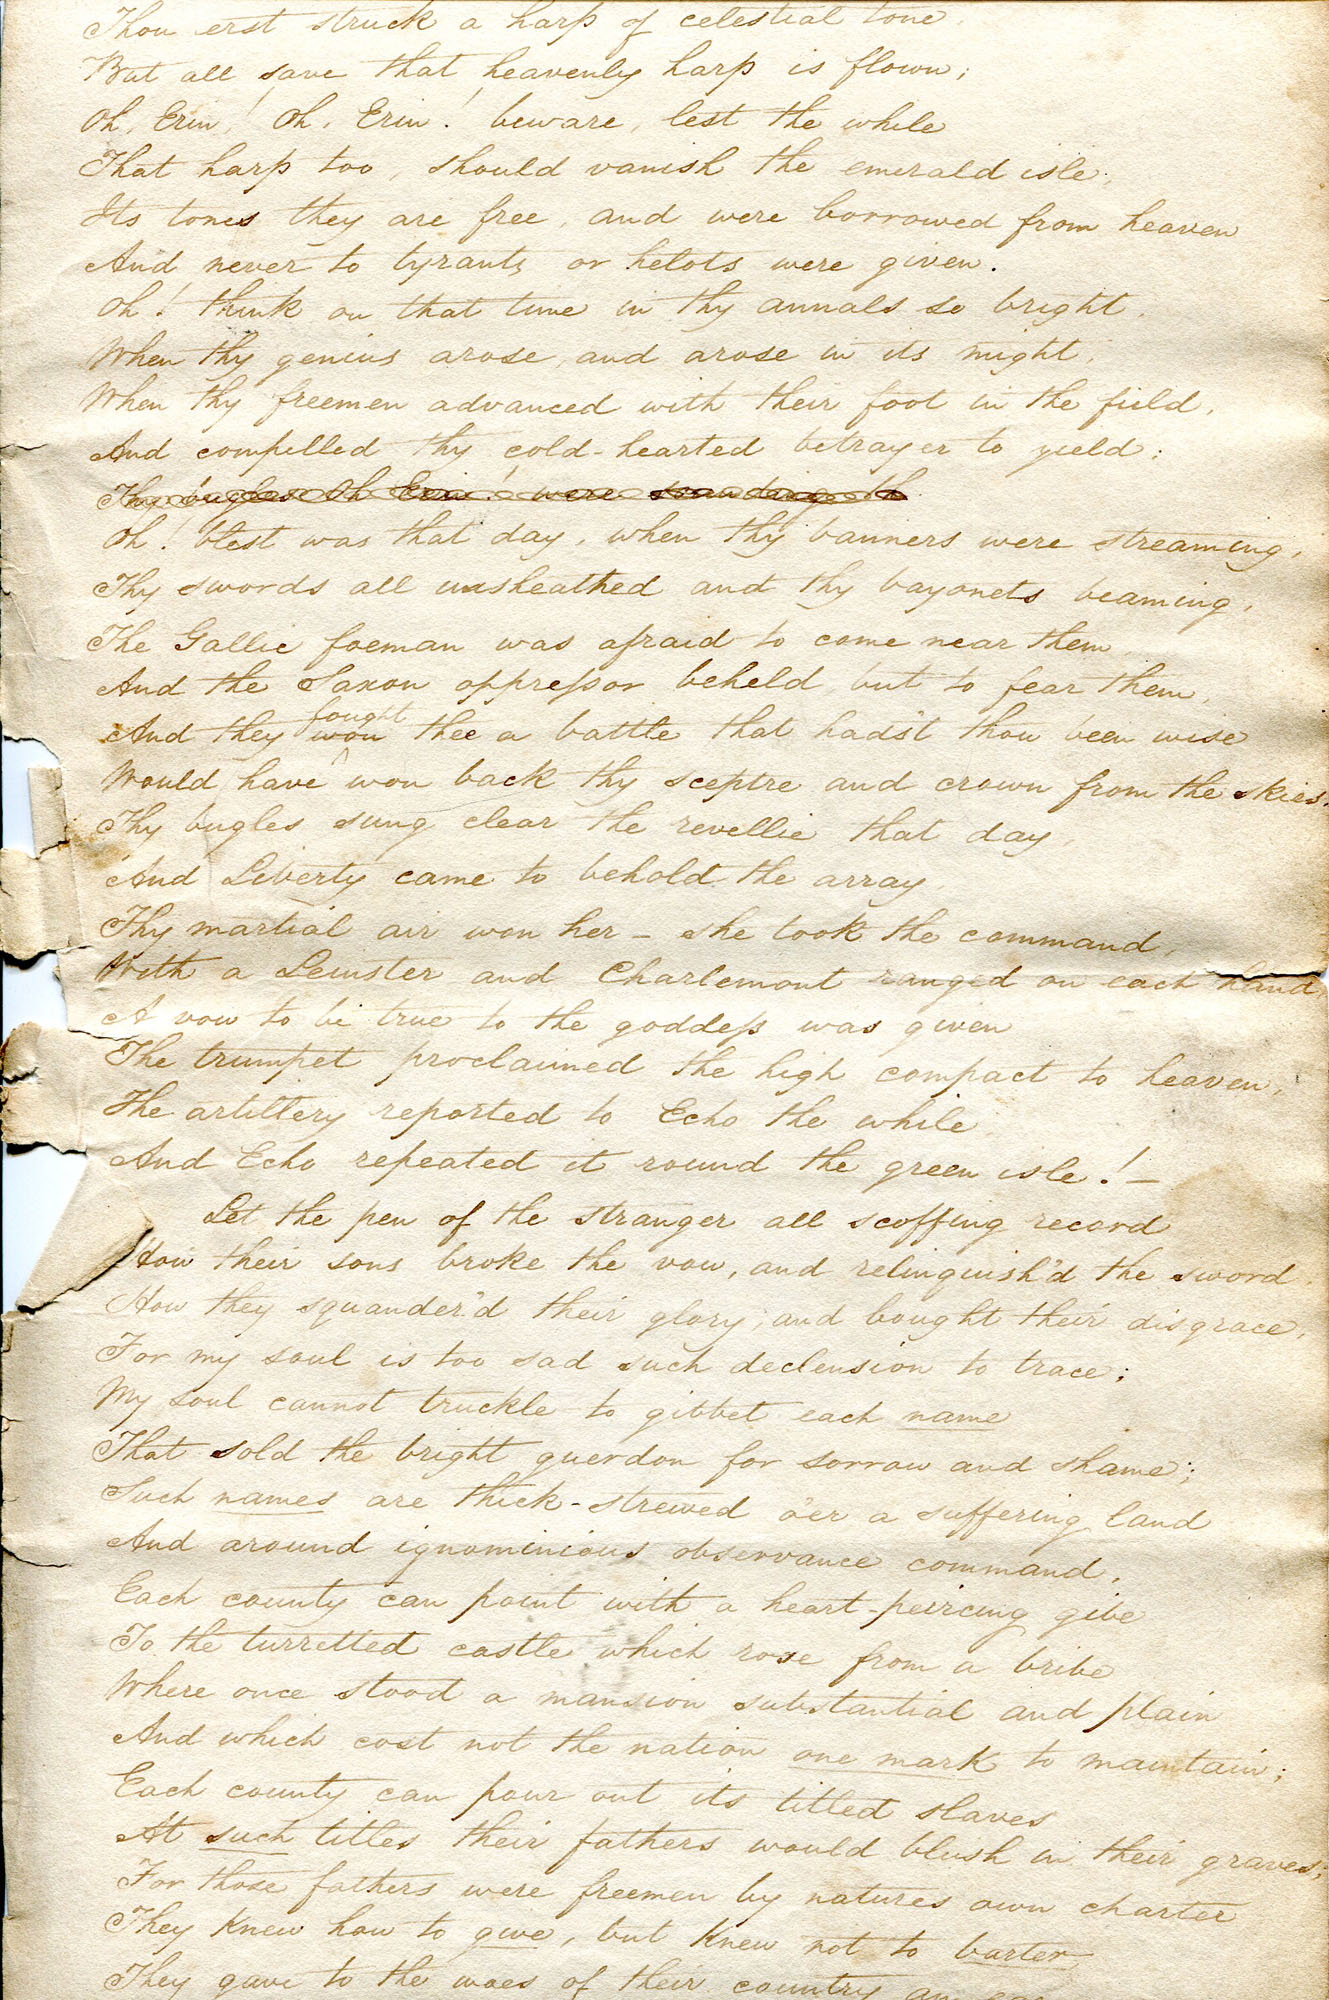 Thou erst struck a harp of celestial tone.
But all save that heavenly harp is flown;
Oh, Erin! Oh, Erin! beware, lest the while
That harp too, should vanish the emerald isle;
Its tones they are free, and were borrowed from heaven
And never to tyrants or helots were given.
Oh! think on that time in thy annals so bright,
When thy genius arose, and arose in its might,
When thy freemen advanced with their foot in the field,
And compelled thy cold-hearted betrayer to yield;
Thy bugles Oh Erin! were sounding th
Oh! blest was that day, when thy banners were streaming,
Thy swords all unsheathed and thy bayonets beaming,
The Gallic foeman was afraid to come near them
And the Saxon oppressor beheld but to fear them,
fought
And they won thee a battle that had'st thou been wise
Would have won back thy sceptre and crown from the skies.
Thy bugles sung clear the revellie that day,
And Liberty came to behold the array
Thy martial air won her – she took the command,
With a Leinster and Charlemont ranged on each hand,
A vow to be true to the goddess was given
The trumpet proclaimed the high compact to heaven,
The artillery reported to Echo the while
And Echo repeated it round the green isle! –
Let the pen of the stranger all scoffing record
How their sons broke the vow, and relinquish'd the sword,
How they squander'd their glory, and bought their disgrace,
For my soul is too sad such declension to trace;
My soul cannot truckle to gibbet each name
That sold the bright guerdon for sorrow and shame;
Such names are thick-strewed o'er a suffering land
And around ignominious observance command,
Each county can point with a heart-peircing gibe
To the turretted castle which rose from a bribe
Where once stood a mansion substantial and plain
And which cost not the nation one mark to maintain;
Each county can pour out its titled slaves
At such titles their fathers would blush in their graves;
For those fathers were freemen by natures own charter
They knew how to give, but knew not to barter
They gave to the woes of their country an